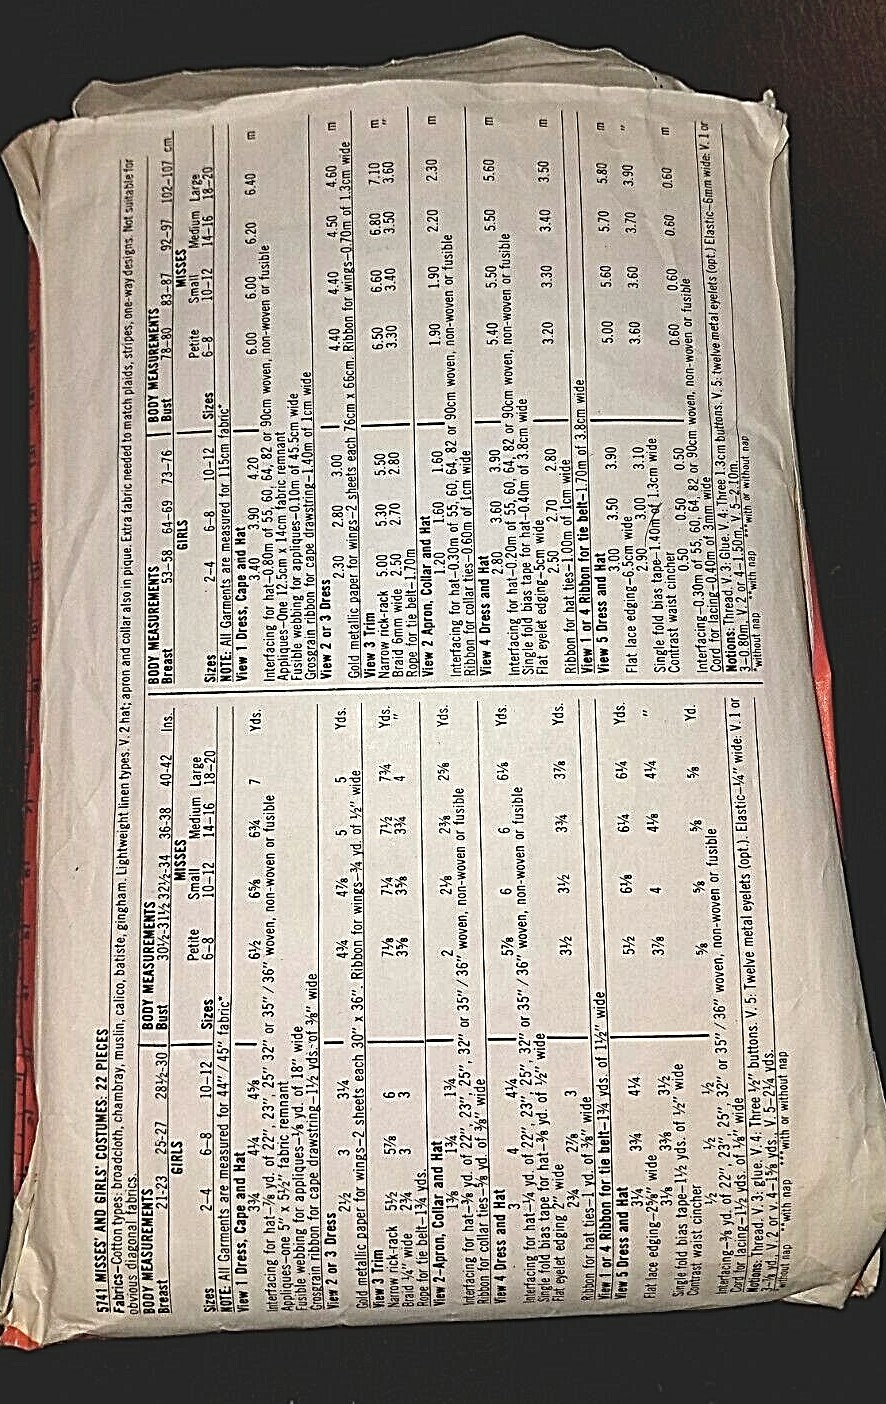 5741 MISSES' AND GIRLS' COSTUMES: 22 PIECES
Fabrics–Cotton types: broadcloth, chambray, muslin, calico, batiste, gingham. Lightweight linen types. V. 2 hat; apron and collar also in pique. Extra fabric needed to match plaids, stripes, one-way designs. Not suitable for
obvious diagonal fabrics.
BODY MEASUREMENTS BODY MEASUREMENTS
Breast 21-23 25-27 28½-30 Bust 30½-31½ 32½-34 36-38 40-42 Ins.
GIRLS MISSES
Petite Small Medium Large
Sizes 2–4 6–8 10–12 Sizes 6–8 10–12 14–16 18–20
NOTE: All Garments are measured for 44"/45" fabric*
View 1 Dress, Cape and Hat
3¾ 4¼ 4⅝ 6½ 6⅝ 6¾ 7 Yds.
Interfacing for hat–⅞ yd. of 22", 23", 25" 32" or 35"/36" woven, non-woven or fusible
Appliques–one 5" x 5½" fabric remnant
Fusible webbing for appliques–⅛ yd. of 18" wide
Grosgrain ribbon for cape drawstring–1½ yds. of ⅜" wide
View 2 or 3 Dress
2½ 3 3¼ 4¾ 4⅞ 5 5 Yds.
Gold metallic paper for wings–2 sheets each 30" x 36". Ribbon for wings–¾ yd. of ½" wide
View 3 Trim
Narrow rick-rack 5½ 5⅞ 6 7⅛ 7¼ 7½ 7¾ Yds.
Braid ¼" wide 2¾ 3 3 3⅝ 3⅝ 3¾ 4 "
Rope for tie belt–1¾ yds.
View 2–Apron, Collar and Hat
1⅜ 1¾ 1¾ 2 2⅛ 2⅜ 2⅝ Yds.
Interfacing for hat–⅜ yd. of 22", 23", 25", 32" or 35"/36" woven, non-woven or fusible
Ribbon for collar ties–⅝ yd. of ⅜" wide
View 4 Dress and Hat
3 4 4¼ 5⅞ 6 6 6⅛ Yds.
Interfacing for hat–¼ yd. of 22", 23", 25", 32" or 35"/36" woven, non-woven or fusible
Single fold bias tape for hat–⅜ yd. of ½" wide
Flat eyelet edging 2" wide
2¾ 2⅞ 3 3½ 3½ 3¾ 3⅞ Yds.
Ribbon for hat ties–1 yd. of ⅜" wide
View 1 or 4 Ribbon for tie belt–1¾ yds. of 1½" wide
View 5 Dress and Hat
3¼ 3¾ 4¼ 5½ 6⅛ 6¼ 6¼ Yds.
Flat lace edging–2⅝" wide
3⅛ 3⅜ 3½ 3⅞ 4 4⅛ 4¼ "
Single fold bias tape–1½ yds. of ½" wide
Contrast waist cincher
½ ½ ½ ⅝ ⅝ ⅝ ⅝ Yd.
Interfacing–⅜ yd. of 22" 23", 25" 32" or 35"/36" woven, non-woven or fusible
Cord for lacing–1½ yds. of ⅛" wide
Notions: Thread. V. 3: glue. V. 4: Three ½" buttons. V. 5: Twelve metal eyelets (opt.). Elastic–¼" wide: V. 1 or
3–⅞ yd. V. 2 or v. 4–1⅝ yds. V. 5–2¼ yds.
*without nap **with nap ***with or without nap
BODY MEASUREMENTS BODY MEASUREMENTS
Breast 53–58 64–69 73–76 Bust 78–80 83–87 92–97 102–107 cm
GIRLS MISSES
Petite Small Medium Large
Sizes 2–4 6–8 10–12 Sizes 6–8 10–12 14–16 18–20
NOTE: All Garments are measured for 115cm fabric*
View 1 Dress, Cape and Hat
3.40 3.90 4.20 6.00 6.00 6.20 6.40 m
Interfacing for hat–0.80m of 55, 60, 64, 82 or 90cm woven, non-woven or fusible
Appliques–One 12.5cm x 14cm fabric remnant
Fusible webbing for appliques–0.10m of 45.5cm wide
Grosgrain ribbon for cape drawstring–1.40m of 1cm wide
View 2 or 3 Dress
2.30 2.80 3.00 4.40 4.40 4.50 4.60 m
Gold metallic paper for wings–2 sheets each 76cm x 66cm. Ribbon for wings–0.70m of 1.3cm wide
View 3 Trim
Narrow rick-rack 5.00 5.30 5.50 6.50 6.60 6.80 7.10 m
Braid 6mm wide 2.50 2.70 2.80 3.30 3.40 3.50 3.60 "
Rope for tie belt–1.70m
View 2 Apron, Collar and Hat
1.20 1.60 1.60 1.90 1.90 2.20 2.30 m
Interfacing for hat–0.30m of 55, 60, 64, 82 or 90cm woven, non-woven or fusible
Ribbon for collar ties–0.60m of 1cm wide
View 4 Dress and Hat
2.80 3.60 3.90 5.40 5.50 5.50 5.60 m
Interfacing for hat–0.20m of 55, 60, 64, 82 or 90cm woven, non-woven or fusible
Single fold bias tape for hat–0.40m of 3.8cm wide
Flat eyelet edging–5cm wide
2.50 2.70 2.80 3.20 3.30 3.40 3.50 m
Ribbon for hat ties–1.00m of 1cm wide
View 1 or 4 Ribbon for tie belt–1.70m of 3.8cm wide
View 5 Dress and Hat
3.00 3.50 3.90 5.00 5.60 5.70 5.80 m
Flat lace edging–6.5cm wide
2.90 3.00 3.10 3.60 3.60 3.70 3.90 "
Single fold bias tape–1.40m of 1.3cm wide
Contrast waist cincher
0.50 0.50 0.50 0.60 0.60 0.60 0.60 m
Interfacing–0.30m of 55, 60, 64, 82 or 90cm woven, non-woven or fusible
Cord for lacing–0.40m of 3mm wide
Notions: Thread. V. 3: Glue. V. 4: Three 1.3cm buttons. V. 5: twelve metal eyelets (opt.) Elastic–6mm wide: V. 1 or
3–0.80m. V. 2 or 4–1.50m. V. 5–2.10m.
*without nap **with nap ***with or without nap